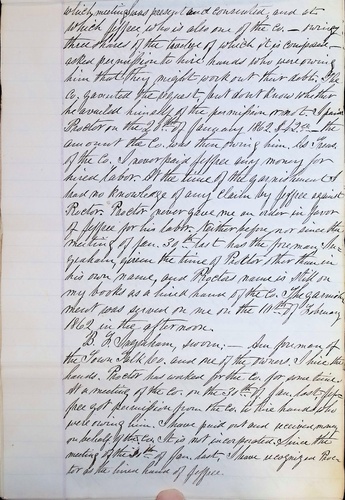 which meeting was present and consented, and at
which Jeffree who is also one of the Co — owning
three shares of the twelve of which it is composed —
asked permission to hire hands who were owing
him that they might work out their debt. The
Co. granted the request, but dont know whether
he availed himself of the permission or not. I paid
Proctor on the 28th of January 1862 — the
amount the Co. was then owing him. As Treas.
of the Co. I never paid Jeffree any money for
hired labor. At the time of the garnishment I
had no knowledge of any claim by Jeffree against
Proctor. Proctor never gave me an order in favor
of Jeffree for his labor. Neither before nor since the
meeting of Jan. 30th last has the foreman, In-
graham, given the time of Proctor other than in
his own name, and Proctors name is still on
my books as a hired hand of the Co. The garnish-
ment was served on me on the 11th of February
1862 in the afternoon.
B. F. Ingraham, sworn, — Am foreman of
the Town Talk Co. and one of the owners. I hire the
hands. Proctor has worked for the Co. for some time.
At a meeting of the Co. on the 30th of Jan. last, Jef-
free got permission from the Co. to hire hands who
were owing him. I have paid out and received money
on behalf of the Co. It is not incorporated. Since the
meeting of the 30th of Jan. last, I have recognized Proc-
tor as the hired hand of Jeffree.